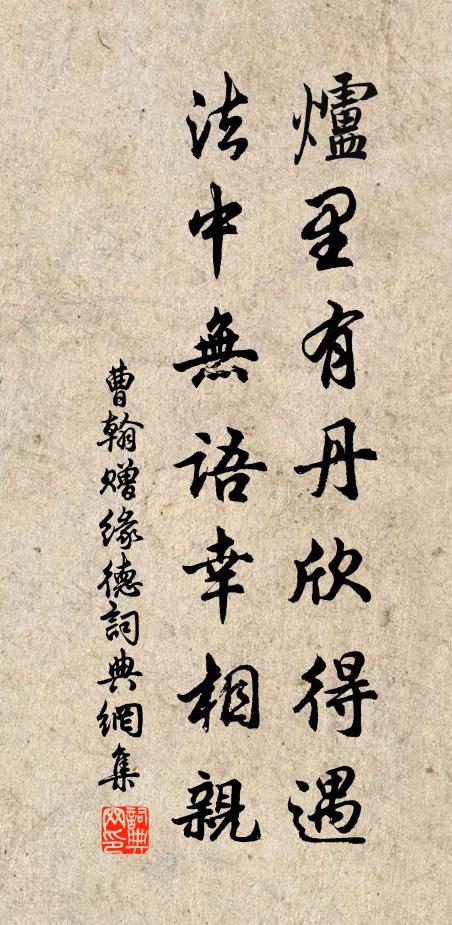 爐里有丹欣得遇
法中無語幸相親
曹翰贈緣德詞典網集
詞典網印